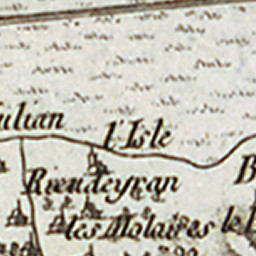 ulian
l'Isle
Rieudeyran
B
les Molaires le